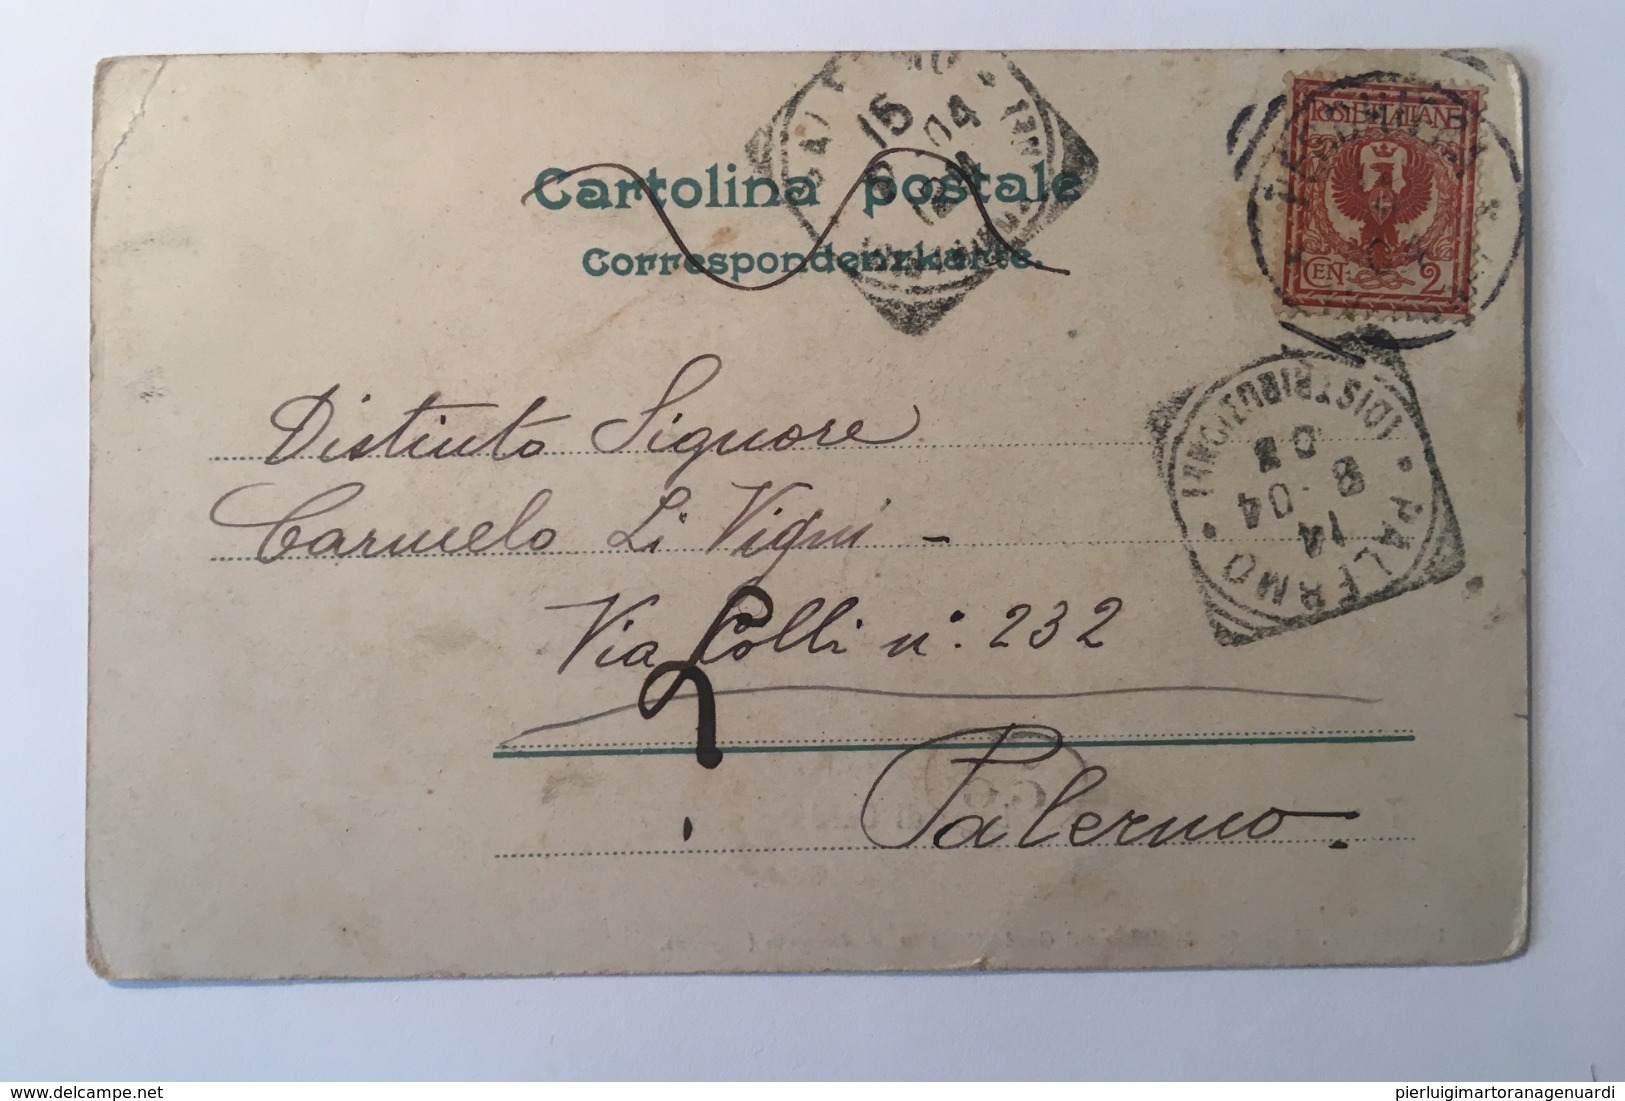 Cartolina postale
Correspondenzkarte.
POSTE ITALIANE
CEN. 2
15
04
PALERMO
14
8 04
Distinto Signore
Carmelo Li Vigni -
Via Colli n°. 232
2
Palermo.
delcampe.net
pierluigimartoranagenuardi